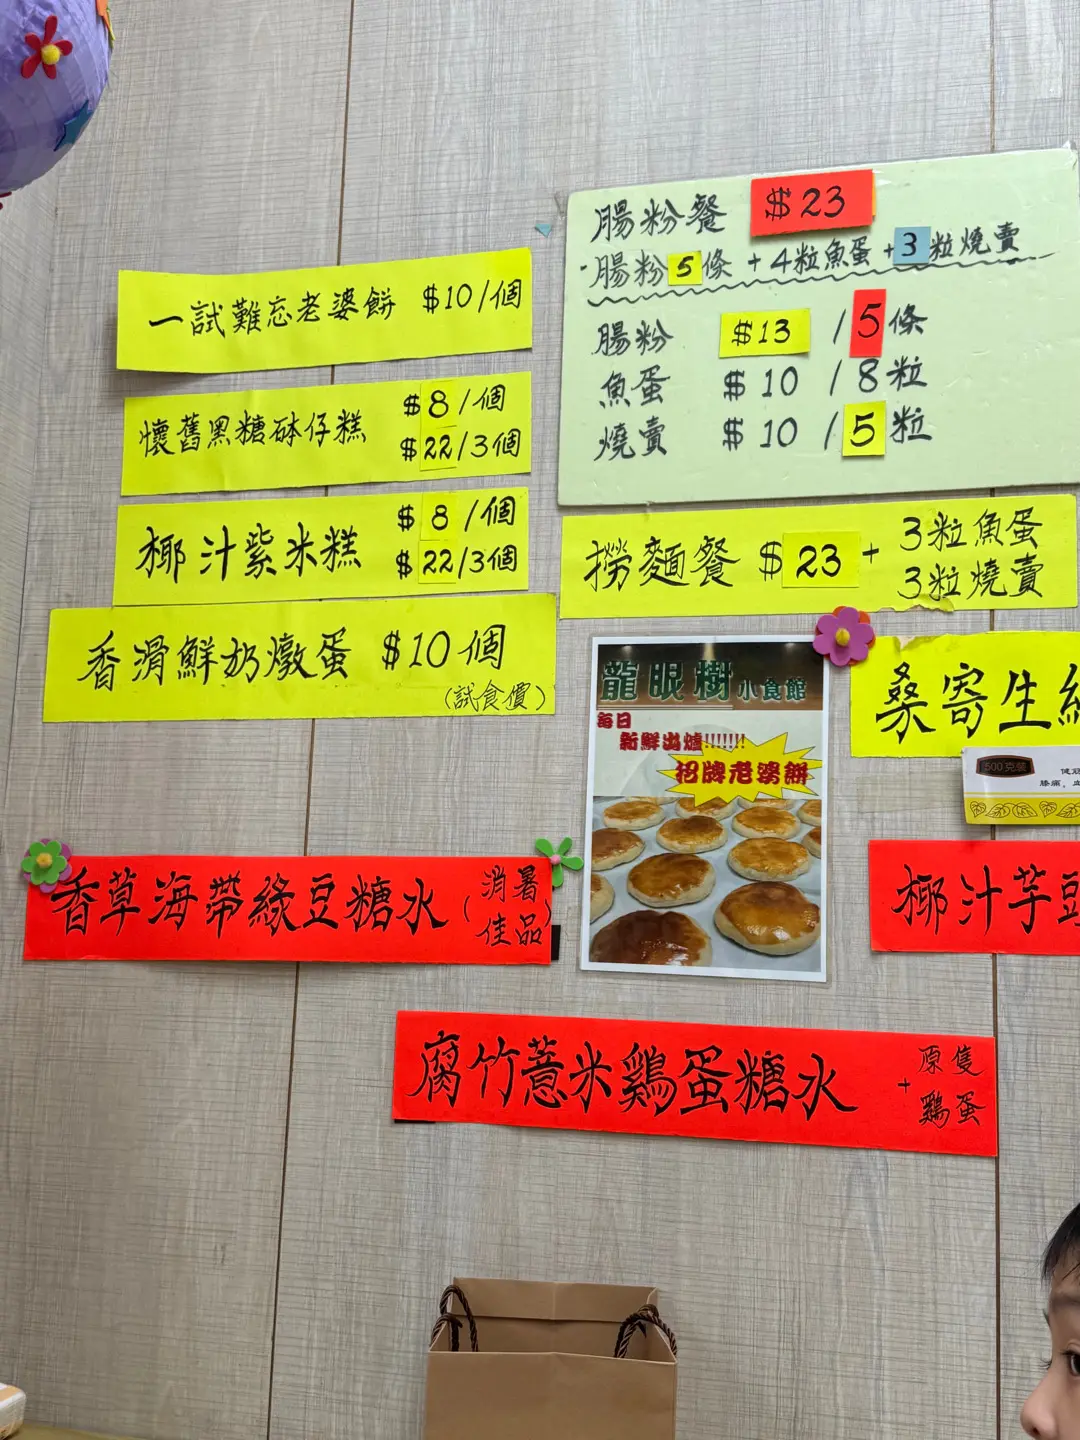 一試難忘老婆餅 $10/個
懷舊黑糖砵仔糕 $8/個
$22/3個
椰汁紫米糕 $8/個
$22/3個
香滑鮮奶燉蛋 $10個
(試食價)
腸粉餐 $23
腸粉5條 + 4粒魚蛋 + 3粒燒賣
腸粉 $13 / 5條
魚蛋 $10 / 8粒
燒賣 $10 / 5粒
撈麵餐 $23 + 3粒魚蛋
3粒燒賣
龍眼樹小食館
每日
新鮮出爐!!!!!!!
招牌老婆餅
桑寄生
500克裝
膝痛,
香草海帶綠豆糖水 (消暑
佳品)
椰汁芋頭
腐竹薏米鷄蛋糖水 + 原隻
鷄蛋